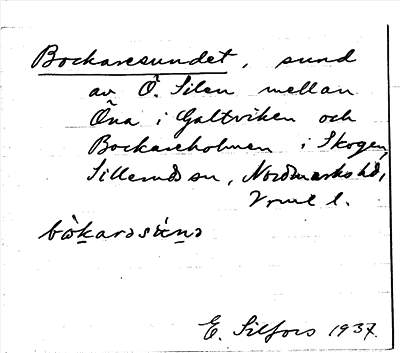 Bockaresundet, sund
av Ö. Silen mellan
Öna i Galtviken och
Bockareholmen i Skogen,
Sillerud sn, Nordmarks hd,
Vrml l.
E. Silfors 1937.